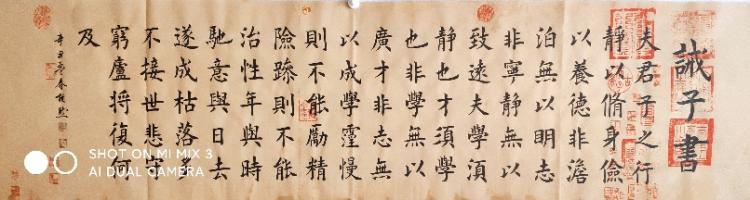 誡子書
夫君子之行
静以脩身儉
以養德非澹
泊無以明志
非寧静無以
致遠夫學須
静也才須學
也非學無以
廣才非志無
以成學霪慢
則不能勵精
險躁則不能
治性年與時
馳意與日去
遂成枯落多
不接世悲守
窮廬将復何
及
辛丑春
SHOT ON MI MIX 3
AI DUAL CAMERA